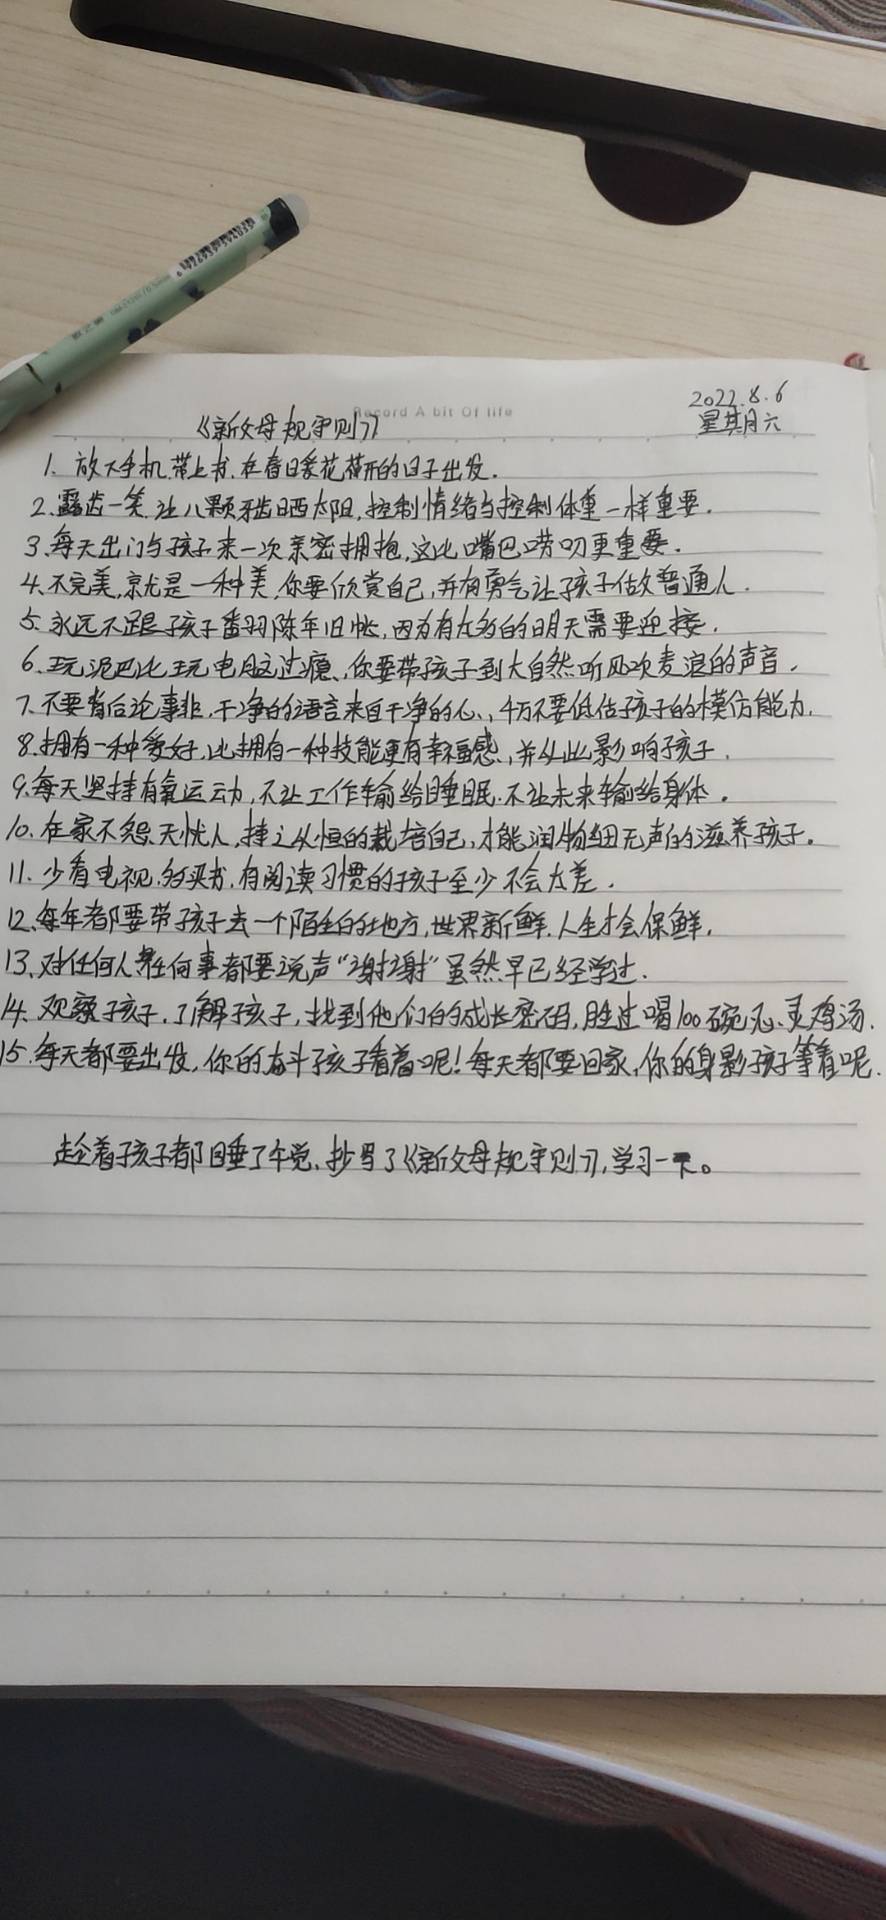 Record A bit Of life
2022.8.6
《新父母规守则》
星期六
1. 放下手机,带上书,在春日繁花盛开的日子出发.
2.露齿一笑,让八颗牙齿晒太阳,控制情绪与控制体重一样重要.
3.每天出门与孩子来一次亲密拥抱,这比嘴巴唠叨更重要.
4.不完美,就是一种美,你要欣赏自己,并有勇气让孩子做普通人.
5.永远不跟孩子番羽陈年旧帐,因为有太多的明天需要迎接.
6.玩泥巴比玩电脑过瘾,你要带孩子到大自然听风吹麦浪的声音.
7.不要背后论事非,干净的语言来自干净的心,千万不要低估孩子的模仿能力.
8.拥有一种爱好,比拥有一种技能更有幸福感,并从此影响孩子.
9.每天坚持有氧运动,不让工作输给睡眠.不让未来输给身体。
10.在家不怨天忧人,持之以恒的栽培自己,才能润物细无声的滋养孩子。
11.少看电视,多买书,有阅读习惯的孩子至少不会太差.
12.每年都要带孩子去一个陌生的地方,世界新鲜,人生才会保鲜.
13.对任何人任何事都要说声“谢谢”虽然早已经学过.
14.观察孩子,了解孩子,找到他们的成长密码,胜过喝100碗心灵鸡汤.
15.每天都要出发,你的奋斗孩子看着呢!每天都要回家,你的身影孩子等着呢.
趁着孩子都睡了午觉,抄写了《新父母规守则》,学习一下。